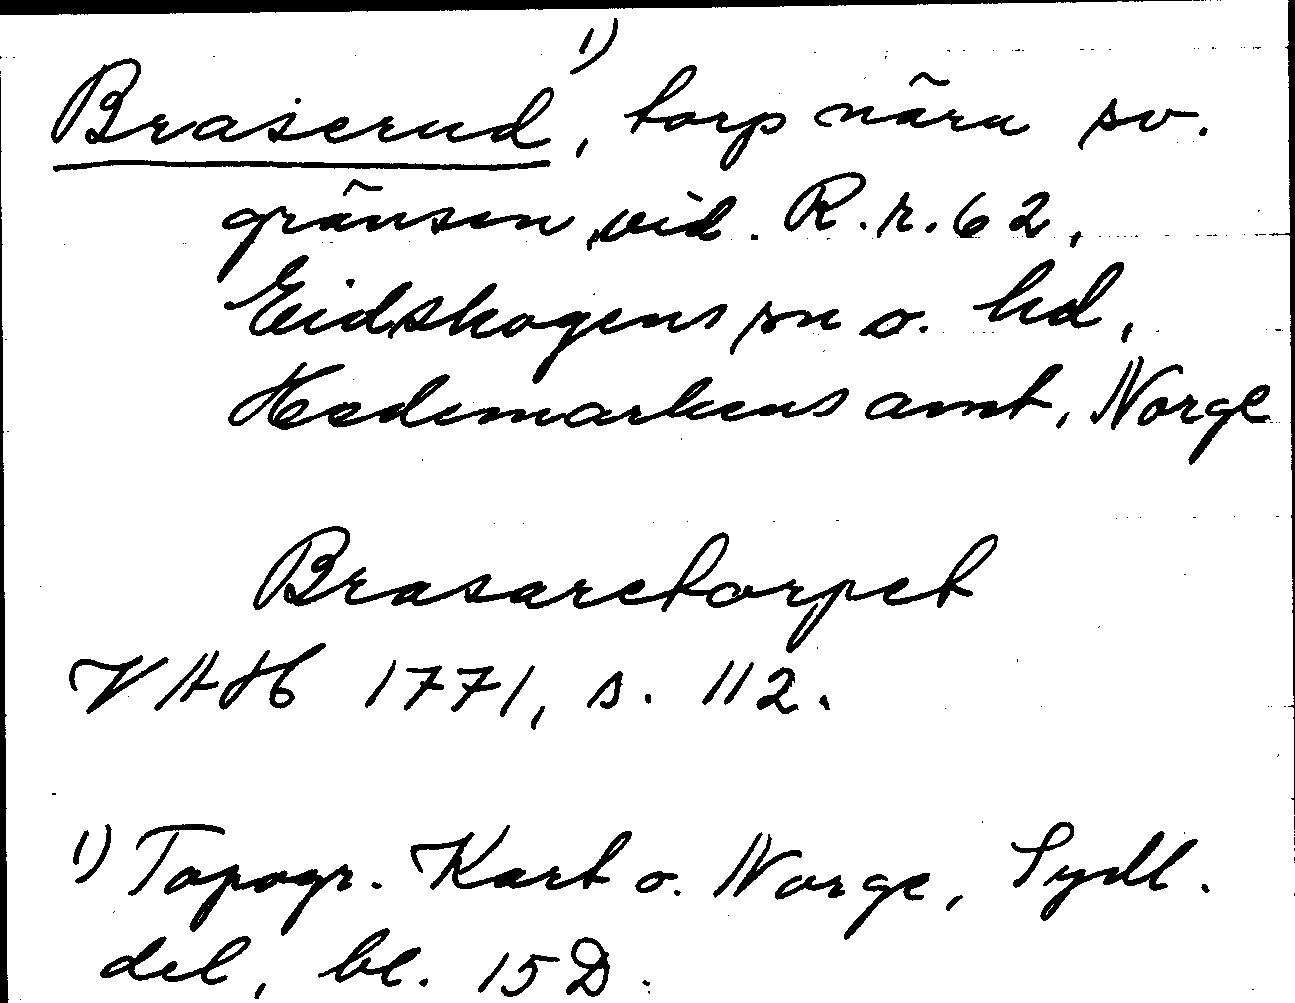 Braserud¹⁾, torp nära sv.
gränsen, vid. R.r. 62,
Eidskogens sn o. hd,
Hedemarkens amt, Norge
Brasaretorpet
VAH 1771, s. 112.
1) Topogr. Kart o. Norge, Sydl.
del, bl. 15 D.